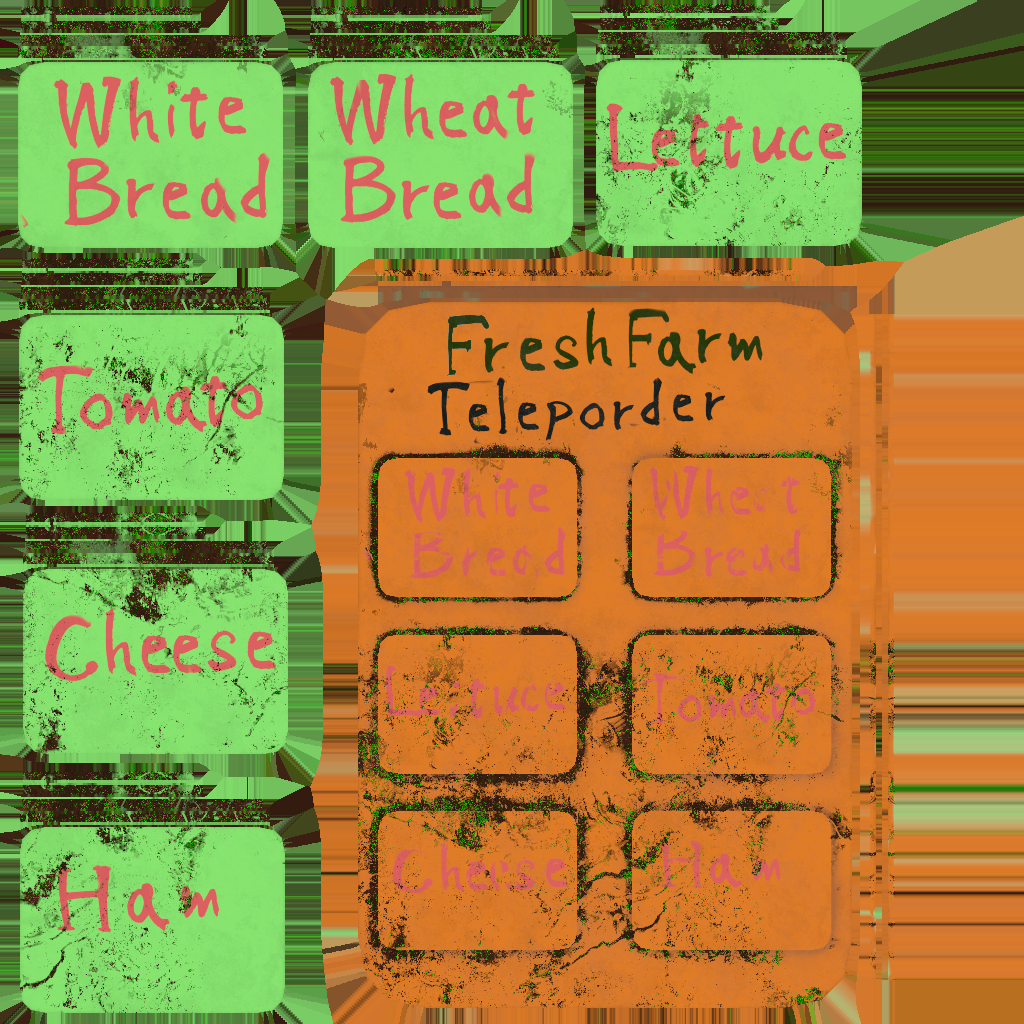 White
Bread
Wheat
Bread
Lettuce
Tomato
Cheese
Ham
Fresh Farm
Teleporder
White
Bread
Wheat
Bread
Lettuce
Tomato
Cheese
Ham